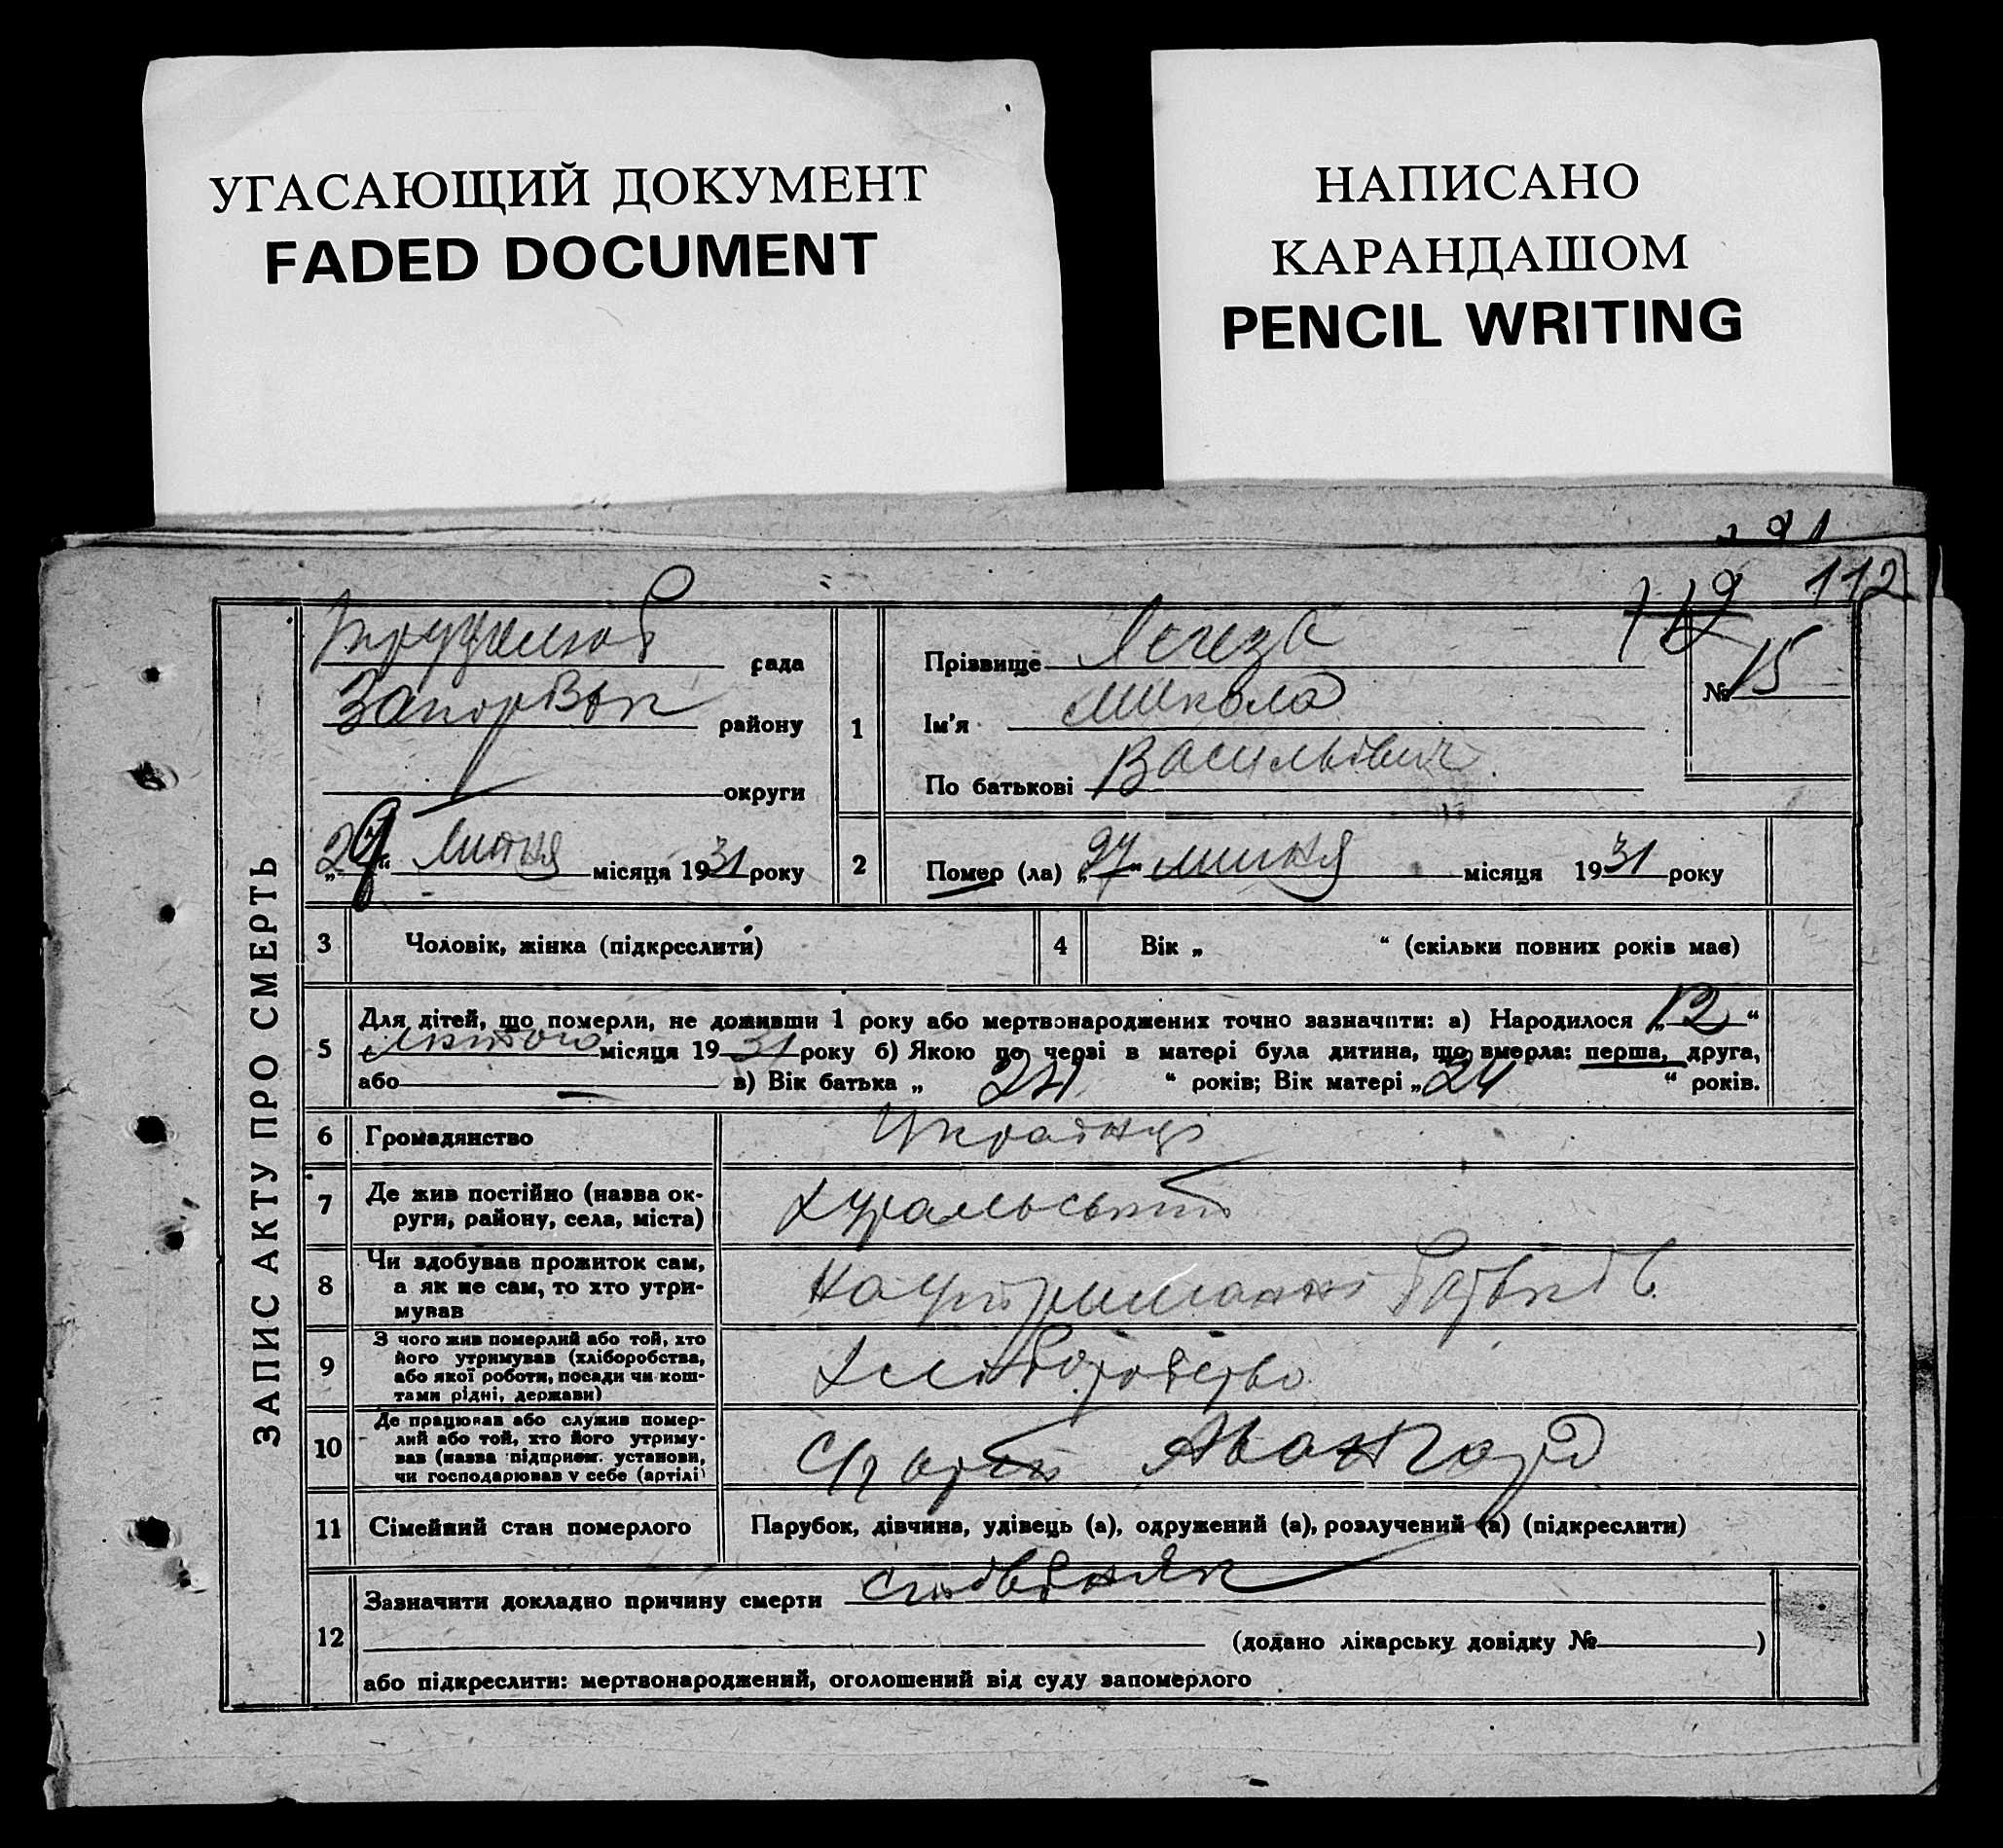 УГАСАЮЩИЙ ДОКУМЕНТ
FADED DOCUMENT
НАПИСАНО
КАРАНДАШОМ
PENCIL WRITING
112
ЗАПИС АКТУ ПРО СМЕРТЬ
сада
району
округи
"29" Липня місяця 1931 року
1
Прізвище Легеза
Ім'я Микола
По батькові Васильович
№ 15
2
Помер (ла) "27" липня місяця 1931 року
3 Чоловік, жінка (підкреслити)
4 Вік „ “ (скільки повних років має)
5
Для дітей, що померли, не доживши 1 року або мертвонароджених точно зазначити: а) Народилося „12“
Лютого місяця 1931 року б) Якою по черзі в матері була дитина, що вмерла: перша, друга,
або в) Вік батька „24“ років; Вік матері „24“ років.
6 Громадянство Українці
7 Де жив постійно (назва ок-
руги, району, села, міста)
8 Чи здобував прожиток сам,
а як не сам, то хто утри-
мував
На утриманні батьків
9 З чого жив померлий або той, хто
його утримував (хліборобства,
або якої роботи, посади чи кош-
тами рідні, держави)
Хліборобство
10 Де працював або служив помер-
лий або той, хто його утриму-
вав (назва підприєм. установи,
чи господарював у себе (артілі)
Авангард
11 Сімейний стан померлого Парубок, дівчина, удівець (а), одружений (а), розлучений (а) (підкреслити)
12
Зазначити докладно причину смерти
(додано лікарську довідку № )
або підкреслити: мертвонароджений, оголошений від суду запомерлого